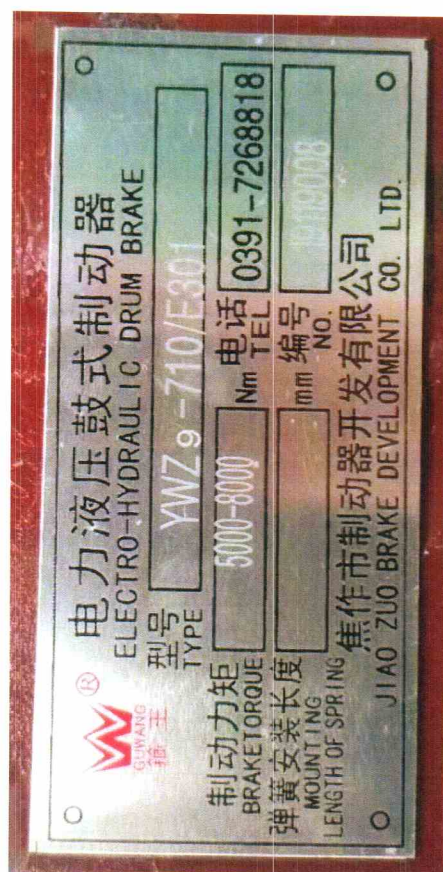 电力液压鼓式制动器
ELECTRO-HYDRAULIC DRUM BRAKE
®
GUWANG
箍王
型号
TYPE
YWZ9-710/E301
制动力矩
BRAKETORQUE
5000-8000
Nm
电话
TEL
0391-7268818
弹簧安装长度
MOUNTING
LENGTH OF SPRING
mm
编号
NO.
焦作市制动器开发有限公司
JIAO ZUO BRAKE DEVELOPMENT CO. LTD.